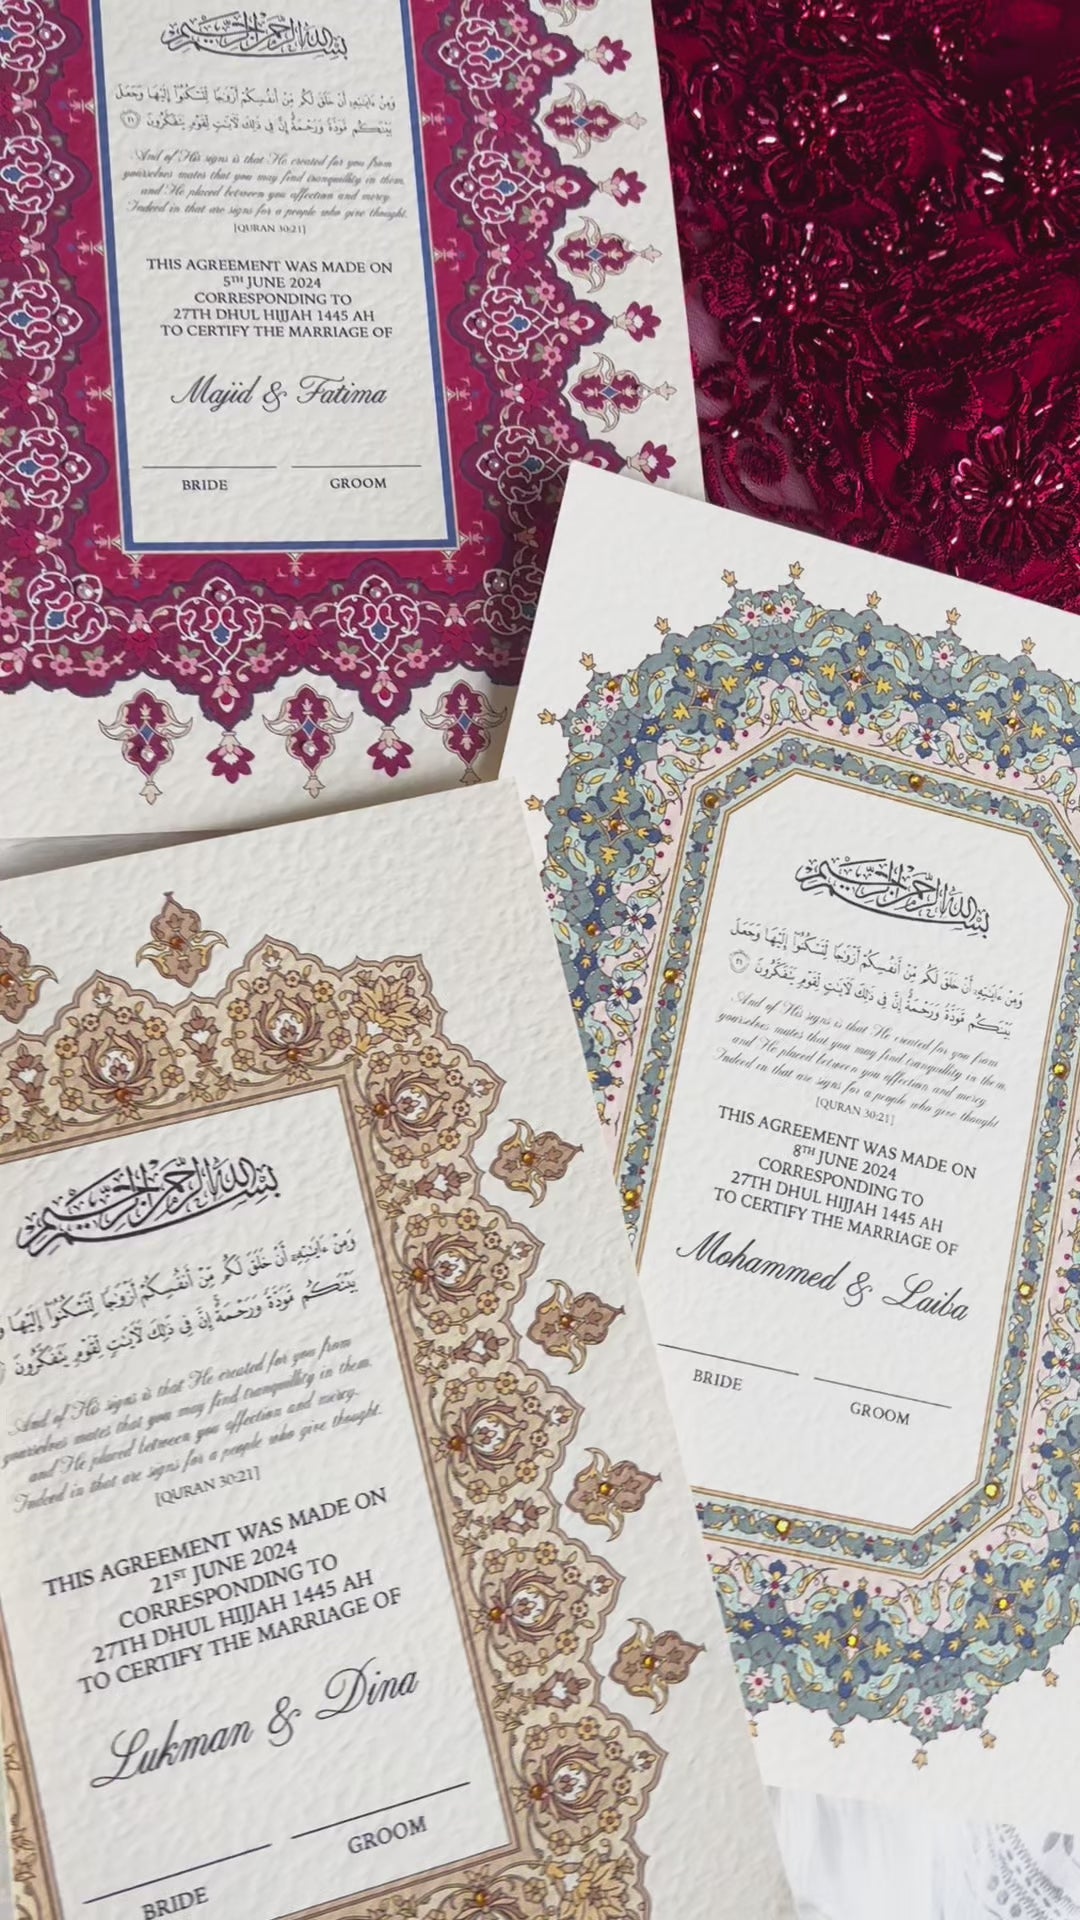 بسم الله الرحمن الرحيم
وَمِنْ ءَايَـٰتِهِۦٓ أَنْ خَلَقَ لَكُم مِّنْ أَنفُسِكُمْ أَزْوَٰجًا لِّتَسْكُنُوٓا۟ إِلَيْهَا وَجَعَلَ
بَيْنَكُم مَّوَدَّةً وَرَحْمَةً إِنَّ فِى ذَٰلِكَ لَـَٔايَـٰتٍ لِّقَوْمٍ يَتَفَكَّرُونَ ٢١
And of His signs is that He created for you from
yourselves mates that you may find tranquillity in them,
and He placed between you affection and mercy.
Indeed in that are signs for a people who give thought.
[QURAN 30:21]
THIS AGREEMENT WAS MADE ON
5TH JUNE 2024
CORRESPONDING TO
27TH DHUL HIJJAH 1445 AH
TO CERTIFY THE MARRIAGE OF
Majid & Fatima
BRIDE GROOM
بسم الله الرحمن الرحيم
وَمِنْ ءَايَـٰتِهِۦٓ أَنْ خَلَقَ لَكُم مِّنْ أَنفُسِكُمْ أَزْوَٰجًا لِّتَسْكُنُوٓا۟ إِلَيْهَا وَجَعَلَ
بَيْنَكُم مَّوَدَّةً وَرَحْمَةً إِنَّ فِى ذَٰلِكَ لَـَٔايَـٰتٍ لِّقَوْمٍ يَتَفَكَّرُونَ ٢١
And of His signs is that He created for you from
yourselves mates that you may find tranquillity in them,
and He placed between you affection and mercy.
Indeed in that are signs for a people who give thought
[QURAN 30:21]
THIS AGREEMENT WAS MADE ON
8TH JUNE 2024
CORRESPONDING TO
27TH DHUL HIJJAH 1445 AH
TO CERTIFY THE MARRIAGE OF
Mohammed & Laiba
BRIDE GROOM
بسم الله الرحمن الرحيم
وَمِنْ ءَايَـٰتِهِۦٓ أَنْ خَلَقَ لَكُم مِّنْ أَنفُسِكُمْ أَزْوَٰجًا لِّتَسْكُنُوٓا۟ إِلَيْهَا
بَيْنَكُم مَّوَدَّةً وَرَحْمَةً إِنَّ فِى ذَٰلِكَ لَـَٔايَـٰتٍ لِّقَوْمٍ يَتَفَكَّرُونَ
And of His signs is that He created for you from
yourselves mates that you may find tranquillity in them,
and He placed between you affection and mercy.
Indeed in that are signs for a people who give thought.
[QURAN 30:21]
THIS AGREEMENT WAS MADE ON
21ST JUNE 2024
CORRESPONDING TO
27TH DHUL HIJJAH 1445 AH
TO CERTIFY THE MARRIAGE OF
Lukman & Dina
BRIDE GROOM